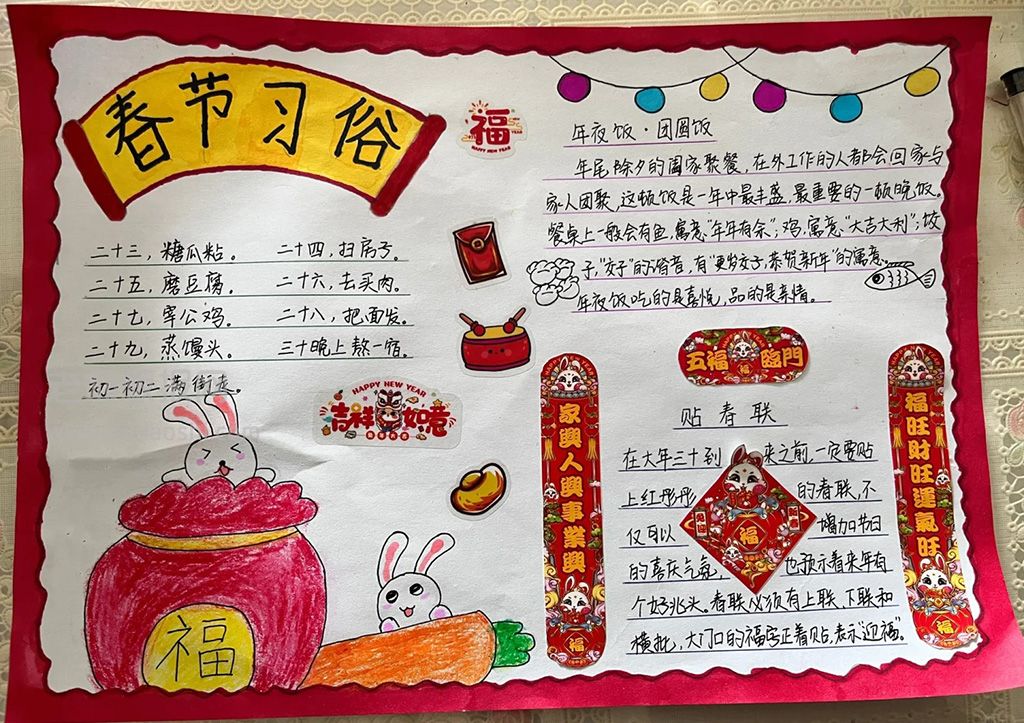 春节习俗
二十三，糖瓜粘。 二十四，扫房子。
二十五，磨豆腐。 二十六，去买肉。
二十七，宰公鸡。 二十八，把面发。
二十九，蒸馒头。 三十晚上熬一宿。
初一初二满街走。
福
HAPPY NEW YEAR
HAPPY NEW YEAR
吉祥如意
福
年夜饭·团圆饭
年尾除夕的阖家聚餐，在外工作的人都会回家与
家人团聚，这顿饭是一年中最丰盛，最重要的一顿晚饭。
餐桌上一般会有鱼，寓意"年年有余"；鸡，寓意"大吉大利"；饺
子，"交子"的谐音，有"更岁交子，恭贺新年"的寓意。
年夜饭吃的是喜悦，品的是亲情。
五福福臨門
家興人興事業興
福
福旺財旺運氣旺
福
贴春联
在大年三十到来之前，一定要贴
上红彤彤的春联，不
仅可以增加节日
的喜庆气氛，也预示着来年有
个好兆头。春联必须有上联、下联和
横批，大门口的福字正着贴，表示"迎福"。
福